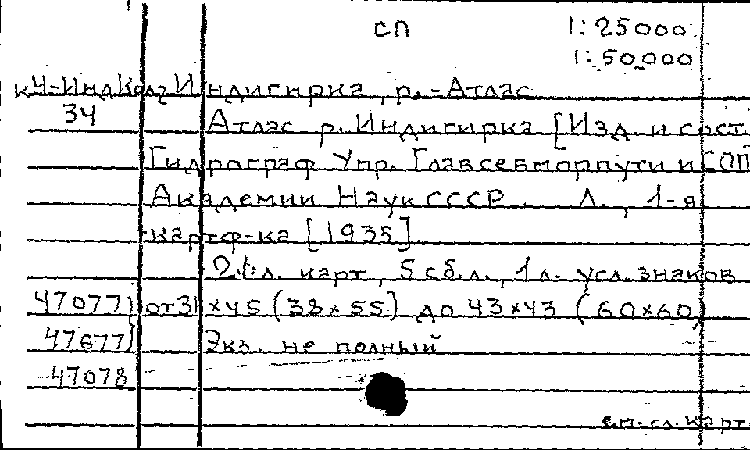 СП 1:25000
1:50000
Индигирка, р.-Атлас
34 Атлас р. Индигирка [Изд. и сост.
Гидрограф Упр. Главсевморпути и СОП
Академии Наук СССР. Л., 1-я
картф-ка [1935]
л. карт, 5 сб.л., 1 л. усл. знаков
47077) от 31×45 (38×55) до 43×43 (60×60)
47677) Экз. не полный
47078
см. сл. карт.